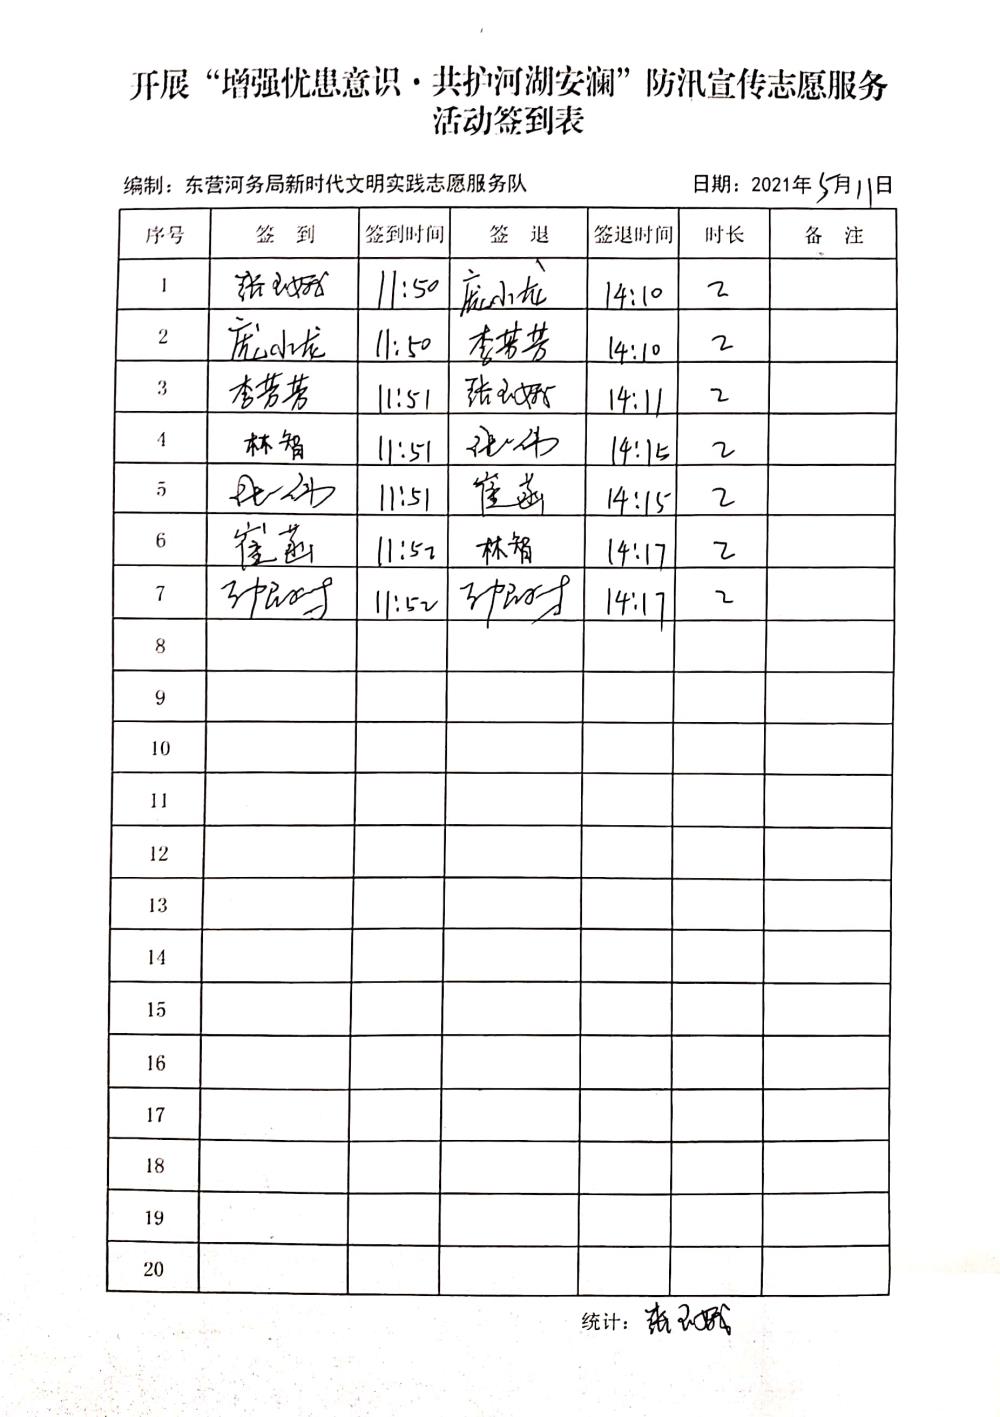 开展“增强忧患意识·共护河湖安澜”防汛宣传志愿服务
活动签到表
编制：东营河务局新时代文明实践志愿服务队 日期：2021年5月11日
序号 签 到 签到时间 签 退 签退时间 时长 备 注
1 张 11:50 庞小龙 14:10 2
2 庞小龙 11:50 李芳芳 14:10 2
3 李芳芳 11:51 张 14:11 2
4 林智 11:51 张一伟 14:15 2
5 张一伟 11:51 崔菡 14:15 2
6 崔菡 11:52 林智 14:17 2
7 11:52 14:17 2
8
9
10
11
12
13
14
15
16
17
18
19
20
统计：张